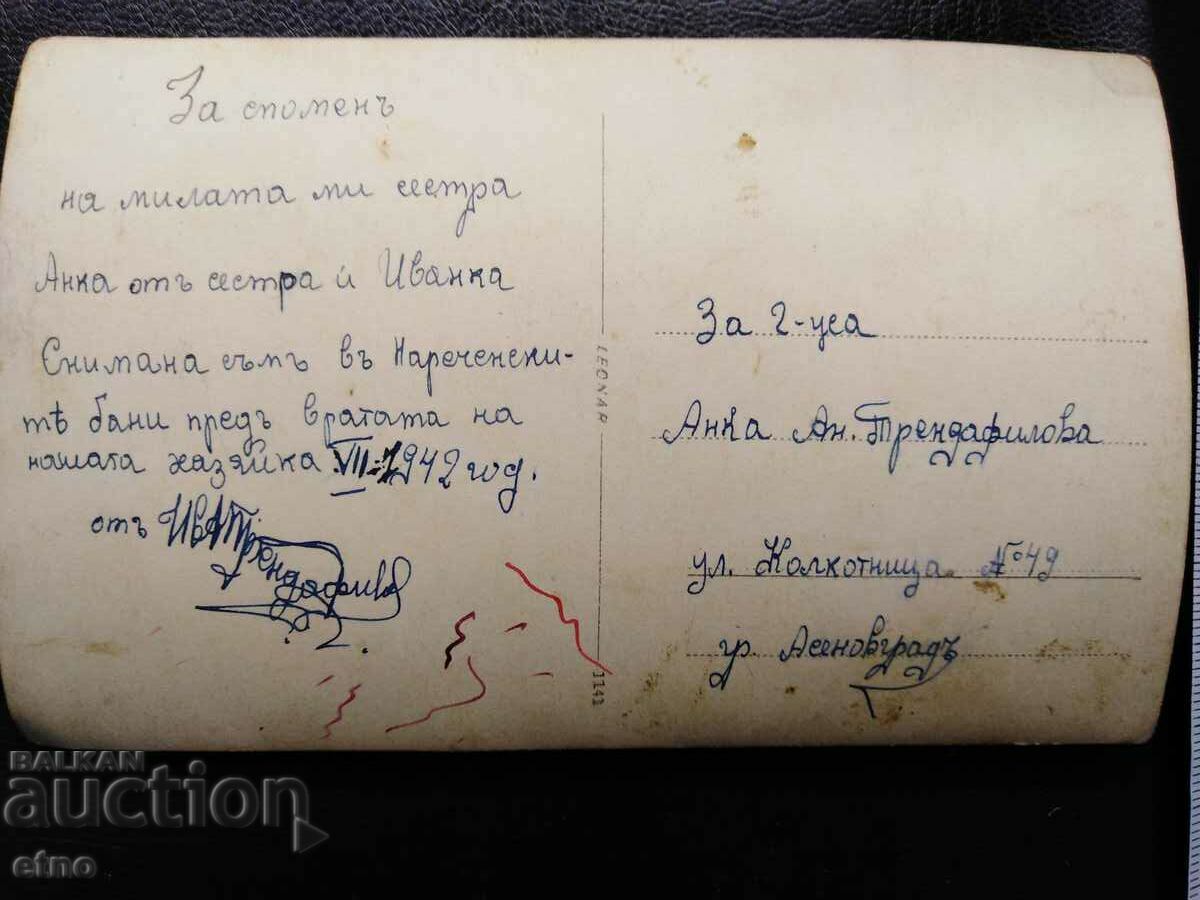 За споменъ
на милата ми сестра
Анка отъ сестра ѝ Иванка
Снимана съмъ въ Нареченски-
тѣ бани предъ вратата на
нашата хазяйка VII-1942 год.
отъ Ив Трендафилова
LEONAR
1141
За г-ца
Анка Ан. Трендафилова
ул. Колкотница №49
гр. Асеновградъ
BALKAN
auction
etno